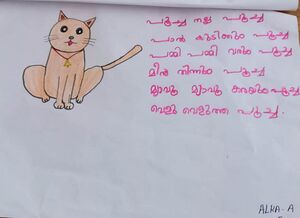 പൂച്ച നല്ല പൂച്ച
പാൽ കുടിക്കും പൂച്ച
പമ്മി പമ്മി വരും പൂച്ച
മീൻ തിന്നും പൂച്ച
മ്യാവൂ മ്യാവൂ കരയും പൂച്ച
വെളു വെളുത്ത പൂച്ച.
ALKA-A